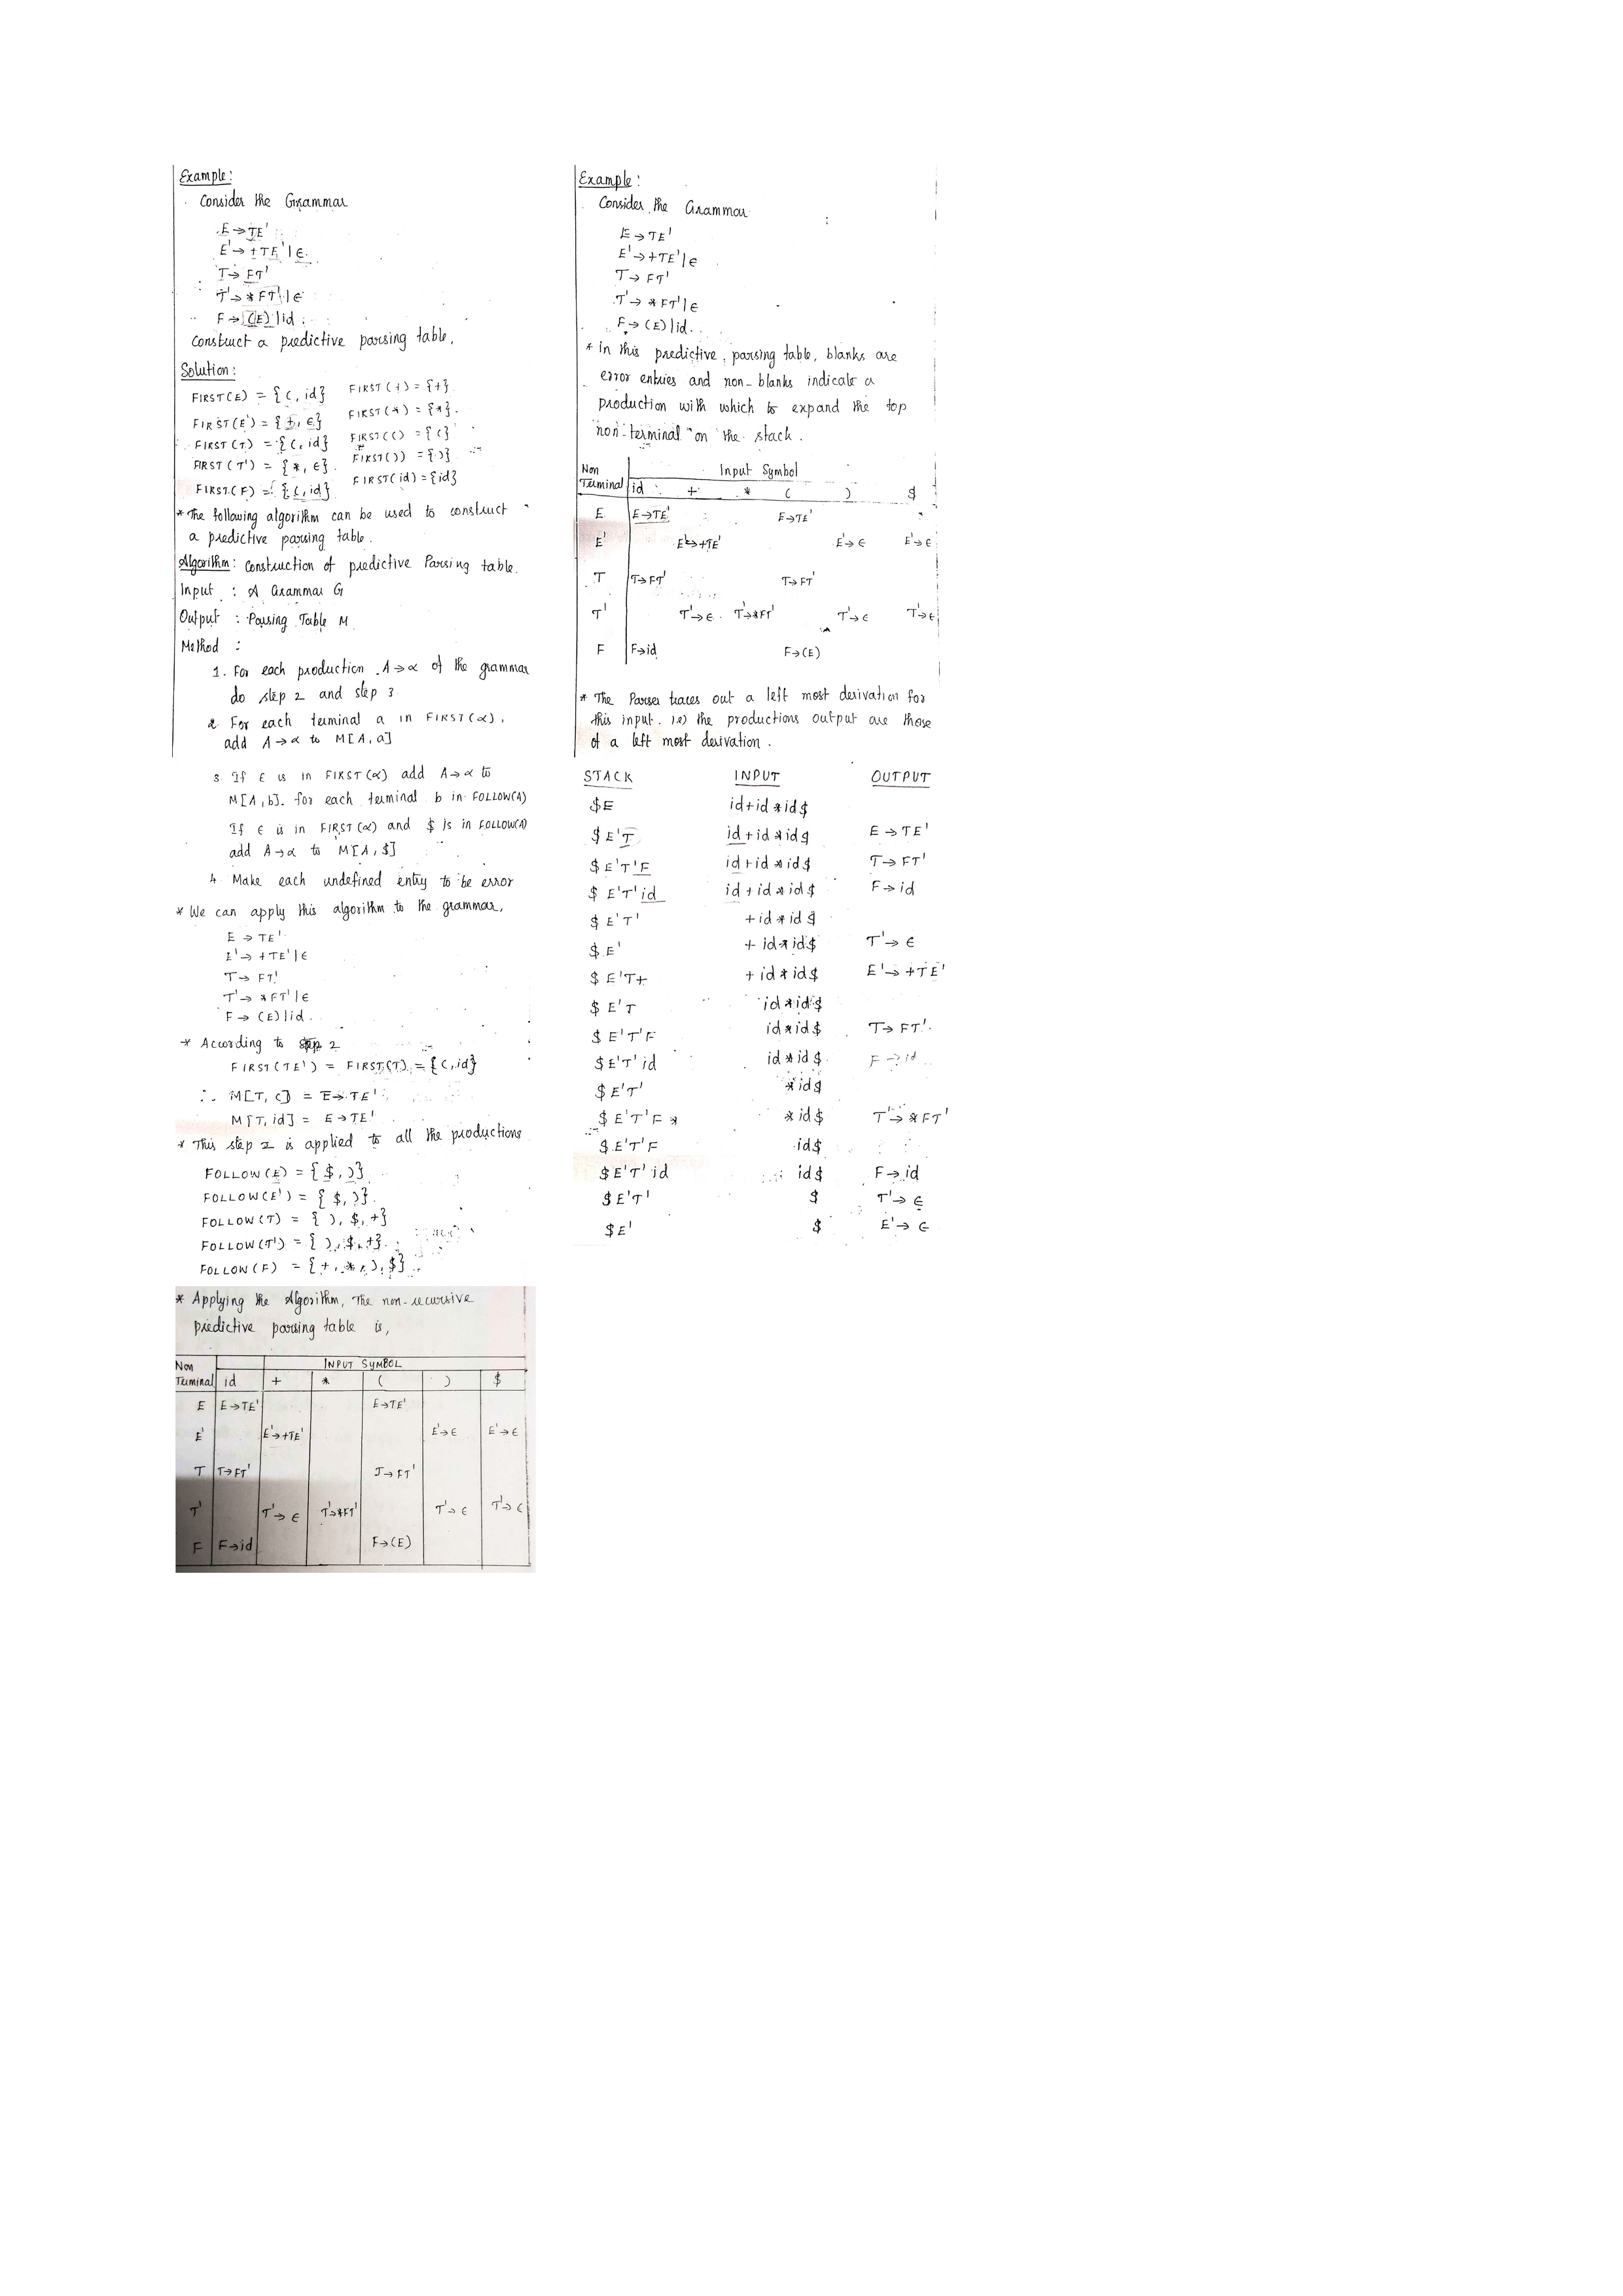 Example:
Consider the Grammar
E→TE'
E'→+TE'|ϵ
T→FT'
T'→*FT'|ϵ
F→(E)|id.
Construct a predictive parsing table.
Solution:
FIRST(E) = {(, id} FIRST(+) = {+}
FIRST(E') = {+, ϵ} FIRST(*) = {*}.
FIRST(T) = {(, id} FIRST(() = {(}
FIRST(T') = {*, ϵ}. FIRST()) = {)}
FIRST(F) = {(, id} FIRST(id) = {id}
* The following algorithm can be used to construct
a predictive parsing table.
Algorithm: Construction of predictive Parsing table.
Input : A Grammar G
Output : Parsing Table M
Method :
1. For each production A→α of the grammar
do step 2 and step 3
2. For each terminal a in FIRST(α),
add A→α to M[A, a]
3. If ϵ is in FIRST(α) add A→α to
M[A, b]. for each terminal b in FOLLOW(A)
If ϵ is in FIRST(α) and $ is in FOLLOW(A)
add A→α to M[A, $]
4. Make each undefined entry to be error
* We can apply this algorithm to the grammar,
E→TE'
E'→+TE'|ϵ
T→FT'
T'→*FT'|ϵ
F→(E)|id.
* According to step 2
FIRST(TE') = FIRST(T) = {(, id}
∴ M[T, (] = E→TE'
M[T, id] = E→TE'
* This step 2 is applied to all the productions
FOLLOW(E) = {$, )}
FOLLOW(E') = {$, )}.
FOLLOW(T) = {), $, +}
FOLLOW(T') = {), $, +}.
FOLLOW(F) = {+, *, ), $}
* Applying the Algorithm, the non-recursive
predictive parsing table is,
Non Terminal INPUT SYMBOL
id + * ( ) $
E E→TE' E→TE'
E' E'→+TE' E'→ϵ E'→ϵ
T T→FT' T→FT'
T' T'→ϵ T'→*FT' T'→ϵ T'→ϵ
F F→id F→(E)
Example:
Consider the Grammar
E→TE'
E'→+TE'|ϵ
T→FT'
T'→*FT'|ϵ
F→(E)|id.
* In this predictive parsing table, blanks are
error entries and non-blanks indicate a
production with which to expand the top
non-terminal on the stack.
Non Terminal Input Symbol
id + * ( ) $
E E→TE' E→TE'
E' E'→+TE' E'→ϵ E'→ϵ
T T→FT' T→FT'
T' T'→ϵ T'→*FT' T'→ϵ T'→ϵ
F F→id F→(E)
* The Parser traces out a left most derivation for
this input. i.e) the productions output are those
of a left most derivation.
STACK INPUT OUTPUT
$E id+id*id$
$E'T id+id*id$ E→TE'
$E'T'F id+id*id$ T→FT'
$E'T'id id+id*id$ F→id
$E'T' +id*id$
$E' +id*id$ T'→ϵ
$E'T+ +id*id$ E'→+TE'
$E'T id*id$
$E'T'F id*id$ T→FT'
$E'T'id id*id$ F→id
$E'T' *id$
$E'T'F* *id$ T'→*FT'
$E'T'F id$
$E'T'id id$ F→id
$E'T' $ T'→ϵ
$E' $ E'→ϵ